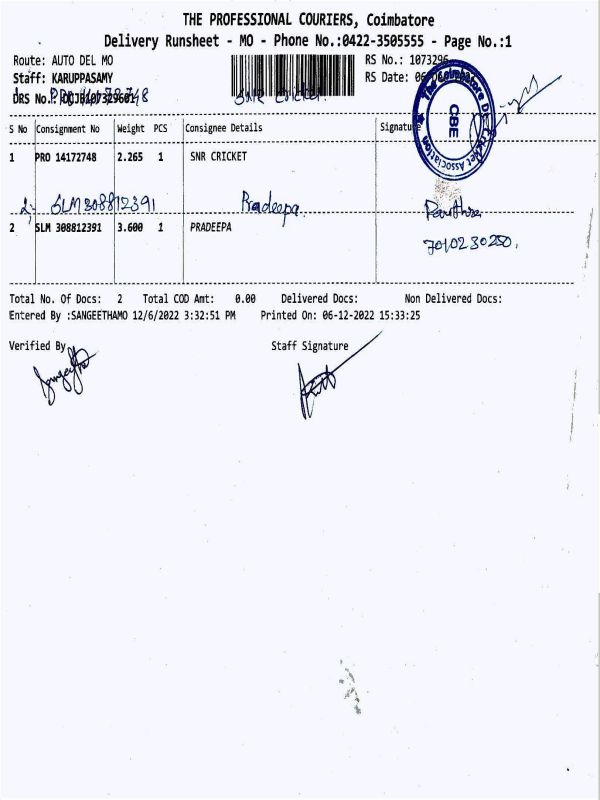 THE PROFESSIONAL COURIERS, Coimbatore
Delivery Runsheet - MO - Phone No.:0422-3505555 - Page No.:1
Route: AUTO DEL MO
RS No.: 1073296
Staff: KARUPPASAMY
RS Date: 06
DRS No.:
SNR Cricket.
S No Consignment No Weight PCS Consignee Details Signature
The Coimbatore District Cricket Association
CBE
1 PRO 14172748 2.265 1 SNR CRICKET
2- SLM 308812391 Pradeepa
2 SLM 308812391 3.600 1 PRADEEPA
7010230250.
Total No. Of Docs: 2 Total COD Amt: 0.00 Delivered Docs: Non Delivered Docs:
Entered By :SANGEETHAMO 12/6/2022 3:32:51 PM Printed On: 06-12-2022 15:33:25
Verified By Staff Signature